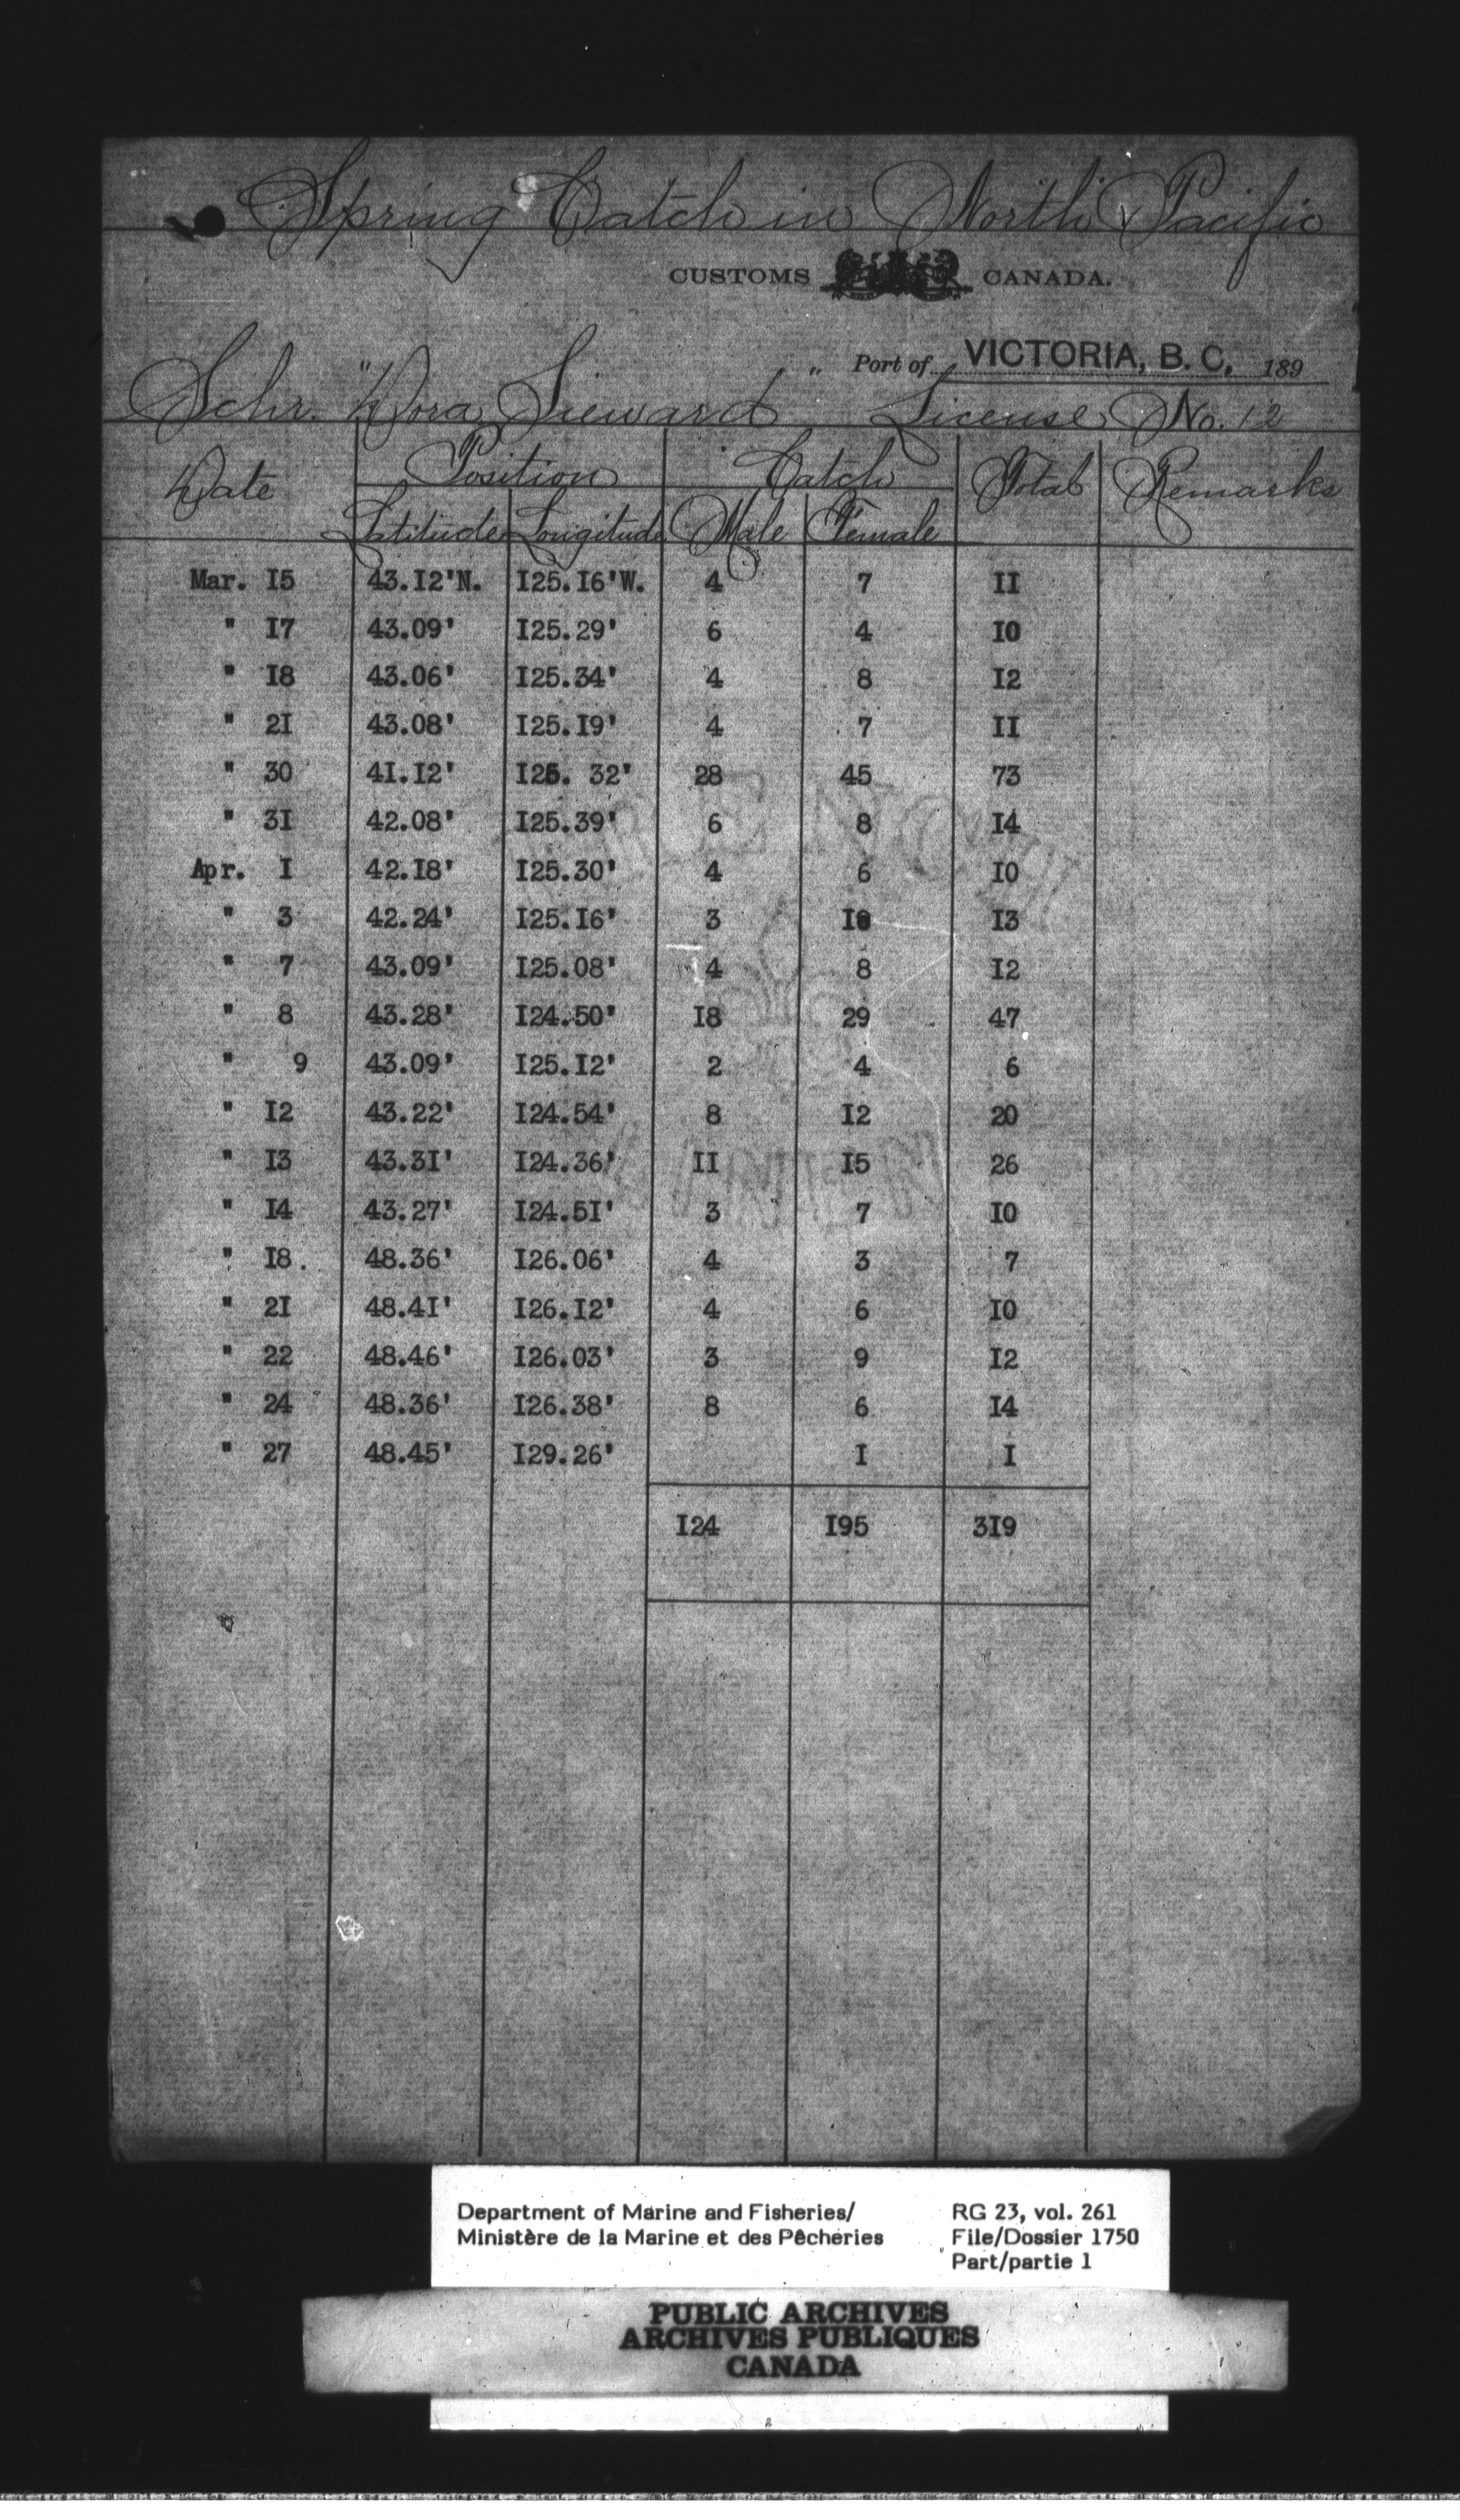 Spring Catch in North Pacific
CUSTOMS CANADA.
Port of VICTORIA, B. C. 189
Schr. "Dora Sieward" License No. 12
Date Position Catch Total Remarks
Latitude Longitude Male Female
Mar. I5 43.I2'N. I25.I6'W. 4 7 II
" I7 43.09' I25.29' 6 4 I0
" I8 43.06' I25.34' 4 8 I2
" 2I 43.08' I25.I9' 4 7 II
" 30 4I.I2' I25. 32' 28 45 73
" 3I 42.08' I25.39' 6 8 I4
Apr. I 42.I8' I25.30' 4 6 I0
" 3 42.24' I25.I6' 3 I0 I3
" 7 43.09' I25.08' 4 8 I2
" 8 43.28' I24.50' I8 29 47
" 9 43.09' I25.I2' 2 4 6
" I2 43.22' I24.54' 8 I2 20
" I3 43.3I' I24.36' II I5 26
" I4 43.27' I24.5I' 3 7 I0
" I8. 48.36' I26.06' 4 3 7
" 2I 48.4I' I26.I2' 4 6 I0
" 22 48.46' I26.03' 3 9 I2
" 24 48.36' I26.38' 8 6 I4
" 27 48.45' I29.26' I I
I24 I95 3I9
Department of Marine and Fisheries/ RG 23, vol. 261
Ministère de la Marine et des Pêcheries File/Dossier 1750
Part/partie 1
PUBLIC ARCHIVES
ARCHIVES PUBLIQUES
CANADA